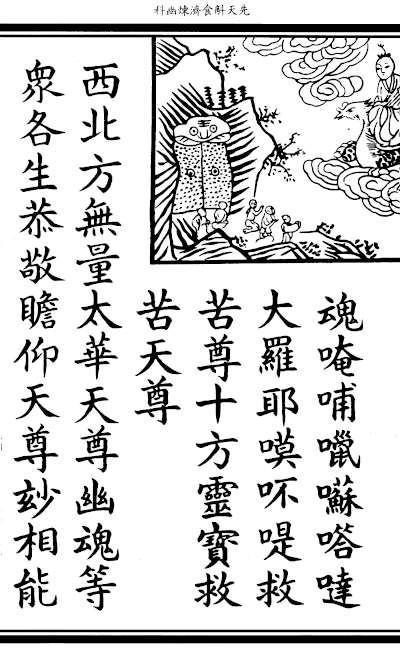 先天斛食濟煉幽科
魂唵哺囌嗒噠
大羅耶嗼吥救
苦尊十方靈寶救
苦天尊
西北方無量太華天尊幽魂等
眾各生恭敬瞻仰天尊玅相能